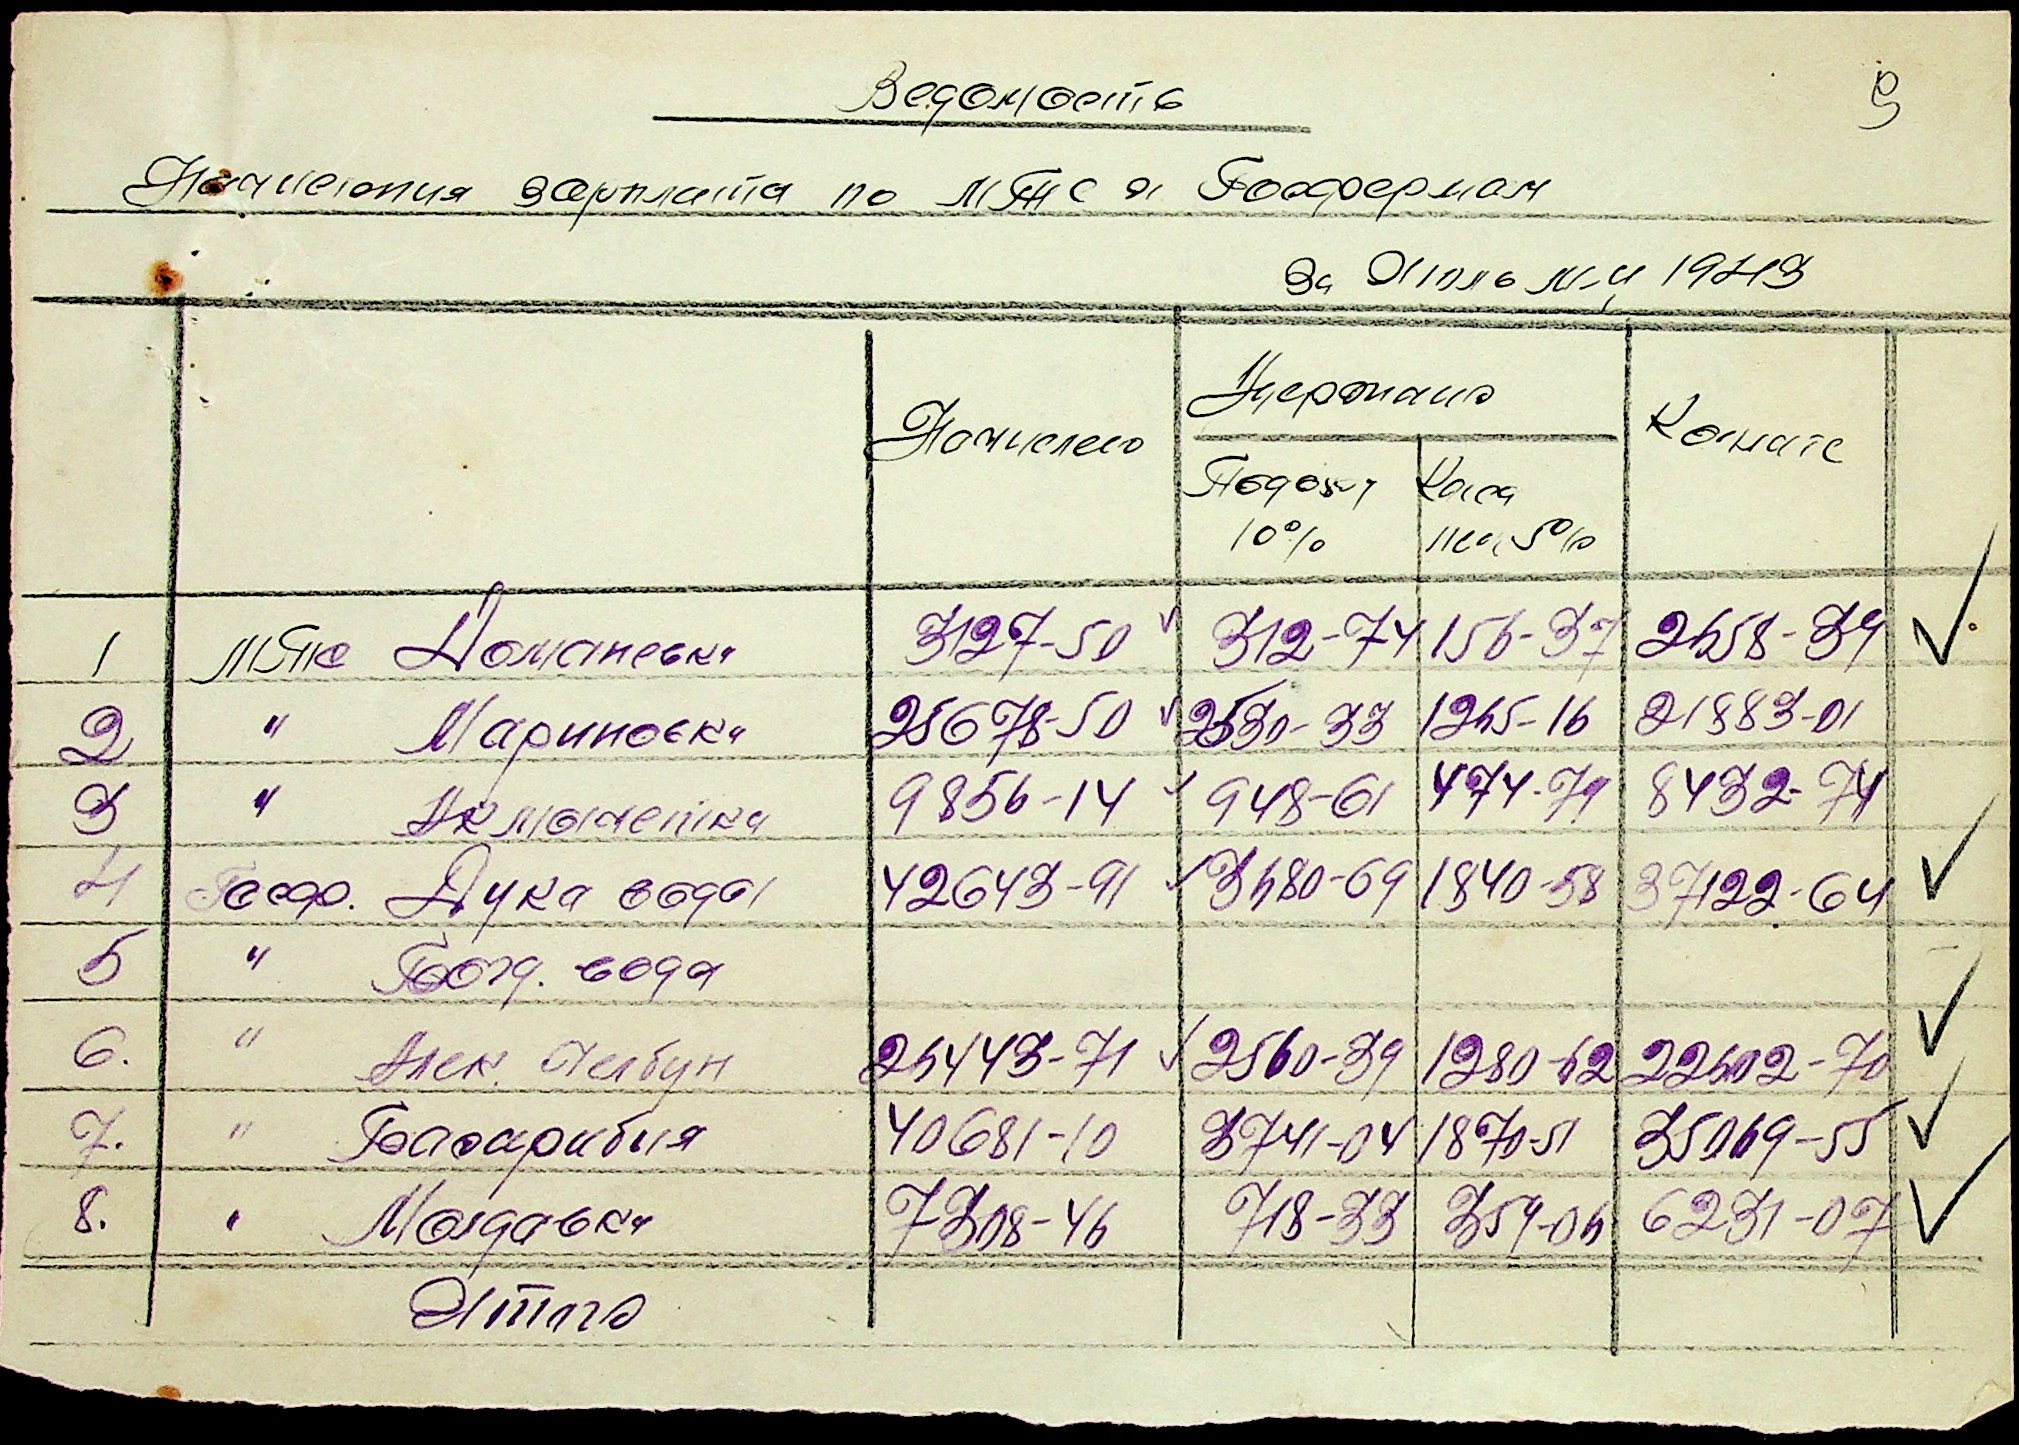 Ведомость
Начисления зарплата по МТС и Госфермам
За Июль м-ц 1943
Начислено
Удержано
Подоход
10%
Касса
5%
К оплате
1 МТС Доманевка 3127-50 312-74 156-37 2658-39
2 " Мариновка 25678-50 2530-33 1265-16 21883-01
3 " Акмечетка 9856-14 948-61 474-79 8432-74
4 Госф. Дука водэ 42643-91 3680-69 1840-58 37122-64
5 " Богд. вода
6. " Алек. Челбун 25443-71 2560-39 1280-62 22602-70
7. " Басарабия 40681-10 3741-04 1870-51 35069-55
8. " Молдавка 7308-46 718-33 359-06 6231-07
Итого